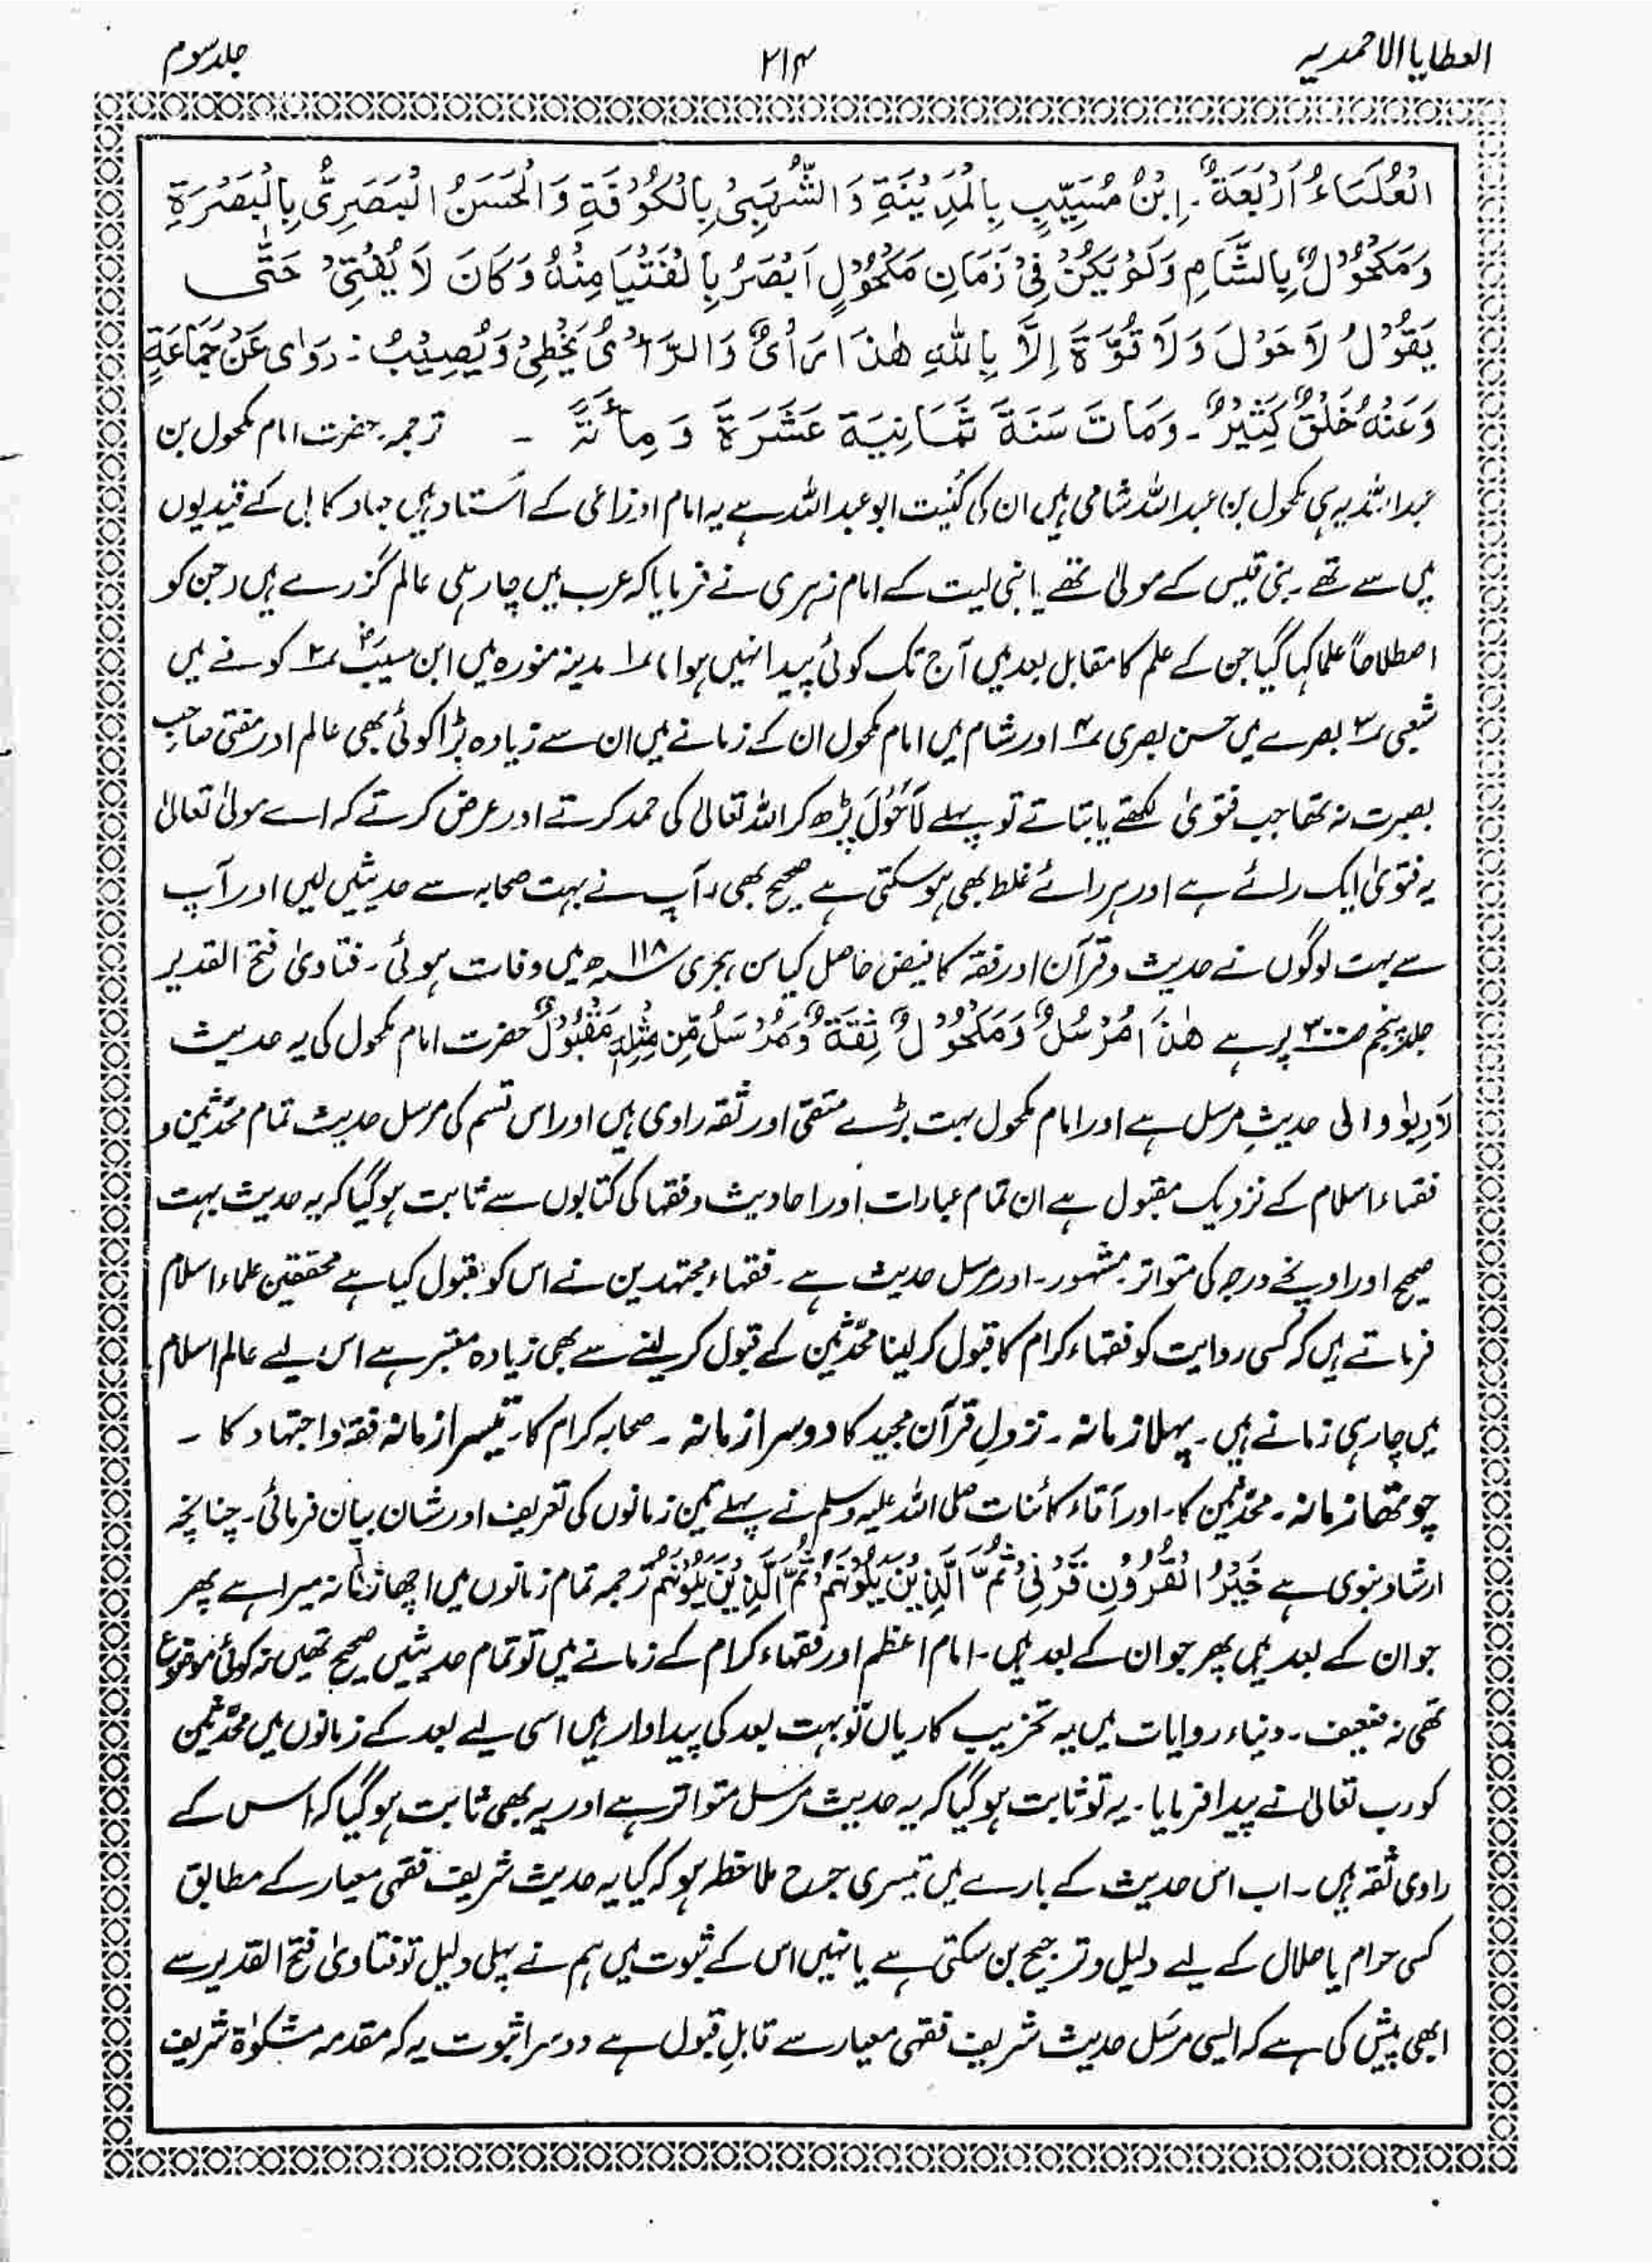 العطایا الاحمدیہ
۲۱۴
جلد سوم
اَلْعُلَمَاءُ اَرْبَعَةٌ۔ اِبْنُ مُسَيِّبٍ بِالْمَدِيْنَةِ وَالشَّعْبِیْ بِالْكُوْفَةِ وَالْحَسَنُ الْبَصَرِیُّ بِالْبَصْرَةِ
وَمَكْحُوْلٌ بِالشَّامِ وَلَمْ يَكُنْ فِیْ زَمَانِ مَكْحُوْلٍ اَبْصَرُ بِالْفُتْيَا مِنْهُ وَكَانَ لَا يُفْتِیْ حَتّٰی
يَقُوْلُ لَا حَوْلَ وَلَا قُوَّةَ اِلَّا بِاللّٰهِ هٰذَا رَأْیٌ وَالرَّأْیُ يُخْطِیْ وَيُصِيْبُ : رَوٰی عَنْ جَمَاعَةٍ
وَعَنْهُ خَلْقٌ كَثِيْرٌ۔ وَمَاتَ سَنَةَ ثَمَانِيَةَ عَشَرَةَ وَ مِأَئَةً ۔ ترجمہ۔ حضرت امام مکحول بن
عبداللہ یہی مکحول بن عبداللہ شامی ہیں ان کی کُنیت ابو عبداللہ ہے یہ امام اوزاعی کے اُستاد ہیں جہاد کابل کے قیدیوں
میں سے تھے۔ بنی قیس کے مولیٰ تھے یا بنی لیث کے امام زہری نے فرمایا کہ عرب میں چار ہی عالم گزرے ہیں (جن کو
اصطلاحاً علما کہا گیا جن کے علم کا مقابل بعد میں آج تک کوئی پیدا نہیں ہوا) ۱؂ مدینہ منورہ میں ابن مسیبؓ ۲؂ کوفے میں
شعبی ۳؂ بصرے میں حسن بصری ۴؂ اور شام میں امام مکحول ان کے زمانے میں ان سے زیادہ بڑا کوئی بھی عالم اور مفتی صاحب
بصیرت نہ تھا جب فتویٰ لکھتے یا بتاتے تو پہلے لَاحَوْلَ پڑھ کر اللہ تعالیٰ کی حمد کرتے اور عرض کرتے کہ اے مولیٰ تعالیٰ
یہ فتویٰ ایک رائے ہے اور ہر رائے غلط بھی ہو سکتی ہے صحیح بھی، آپ نے بہت صحابہ سے حدیثیں لیں اور آپ
سے بہت لوگوں نے حدیث و قرآن اور فقہ کا فیض حاصل کیا سن ہجری ۱۱۸ھ میں وفات ہوئی۔ فتاویٰ فتح القدیر
جلد پنجم صـ۳۰۰ پر ہے هٰذَا مُرْسُلٌ وَمَكْحُوْلٌ ثِقَةٌ وَمُرْسَلٌ مِّنْ مِثْلِهٖ مَقْبُوْلٌ حضرت امام مکحول کی یہ حدیث
لَارِبٰو والی حدیث مرسل ہے اور امام مکحول بہت بڑے متقی اور ثقہ راوی ہیں اور اس قسم کی مرسل حدیث تمام محدّثین و
فقہاء اسلام کے نزدیک مقبول ہے ان تمام عبارات اور احادیث و فقہا کی کتابوں سے ثابت ہو گیا کہ یہ حدیث بہت
صحیح اور اونچے درجہ کی متواتر۔ مشہور۔ اور مرسل حدیث ہے۔ فقہاء مجتہدین نے اس کو قبول کیا ہے محققین علماء اسلام
فرماتے ہیں کہ کسی روایت کو فقہاء کرام کا قبول کر لینا محدّثین کے قبول کر لینے سے بھی زیادہ معتبر ہے اس لیے عالم اسلام
میں چار ہی زمانے ہیں۔ پہلا زمانہ۔ نزولِ قرآن مجید کا دوسرا زمانہ۔ صحابہ کرام کا۔ تیسرا زمانہ فقہ و اجتہاد کا ۔
چوتھا زمانہ۔ محدّثین کا۔ اور آقاء کائنات صلی اللہ علیہ وسلم نے پہلے تین زمانوں کی تعریف اور شان بیان فرمائی۔ چنانچہ
ارشاد نبوی ہے خَيْرُ الْقُرُوْنِ قَرْنِیْ ثُمَّ الَّذِيْنَ يَلُوْنَهُمْ ثُمَّ الَّذِيْنَ يَلُوْنَهُمْ ترجمہ تمام زمانوں میں اچھا زمانہ میرا ہے پھر
جو ان کے بعد ہیں پھر جو ان کے بعد ہیں۔ امام اعظم اور فقہاء کرام کے زمانے میں تو تمام حدیثیں صحیح تھیں نہ کوئی موضوع
تھی نہ ضعیف۔ دنیاء روایات میں یہ تخریب کاریاں تو بہت بعد کی پیداوار ہیں اسی لیے بعد کے زمانوں میں محدّثین
کو رب تعالیٰ نے پیدا فرمایا۔ یہ تو ثابت ہو گیا کہ یہ حدیث مرسل متواتر ہے اور یہ بھی ثابت ہو گیا کہ اس کے
راوی ثقہ ہیں۔ اب اس حدیث کے بارے میں تیسری جرح ملاحظہ ہو کہ کیا یہ حدیث شریف فقہی معیار کے مطابق
کسی حرام یا حلال کے لیے دلیل و ترجیح بن سکتی ہے یا نہیں اس کے ثبوت میں ہم نے پہلی دلیل تو فتاویٰ فتح القدیر سے
ابھی پیش کی ہے کہ ایسی مرسَل حدیث شریف فقہی معیار سے قابلِ قبول ہے دوسرا ثبوت یہ کہ مقدمہ مشکوٰۃ شریف